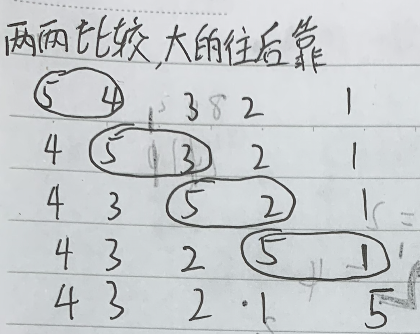 两两比较,大的往后靠
5 4 3 2 1
4 5 3 2 1
4 3 5 2 1
4 3 2 5 1
4 3 2 1 5